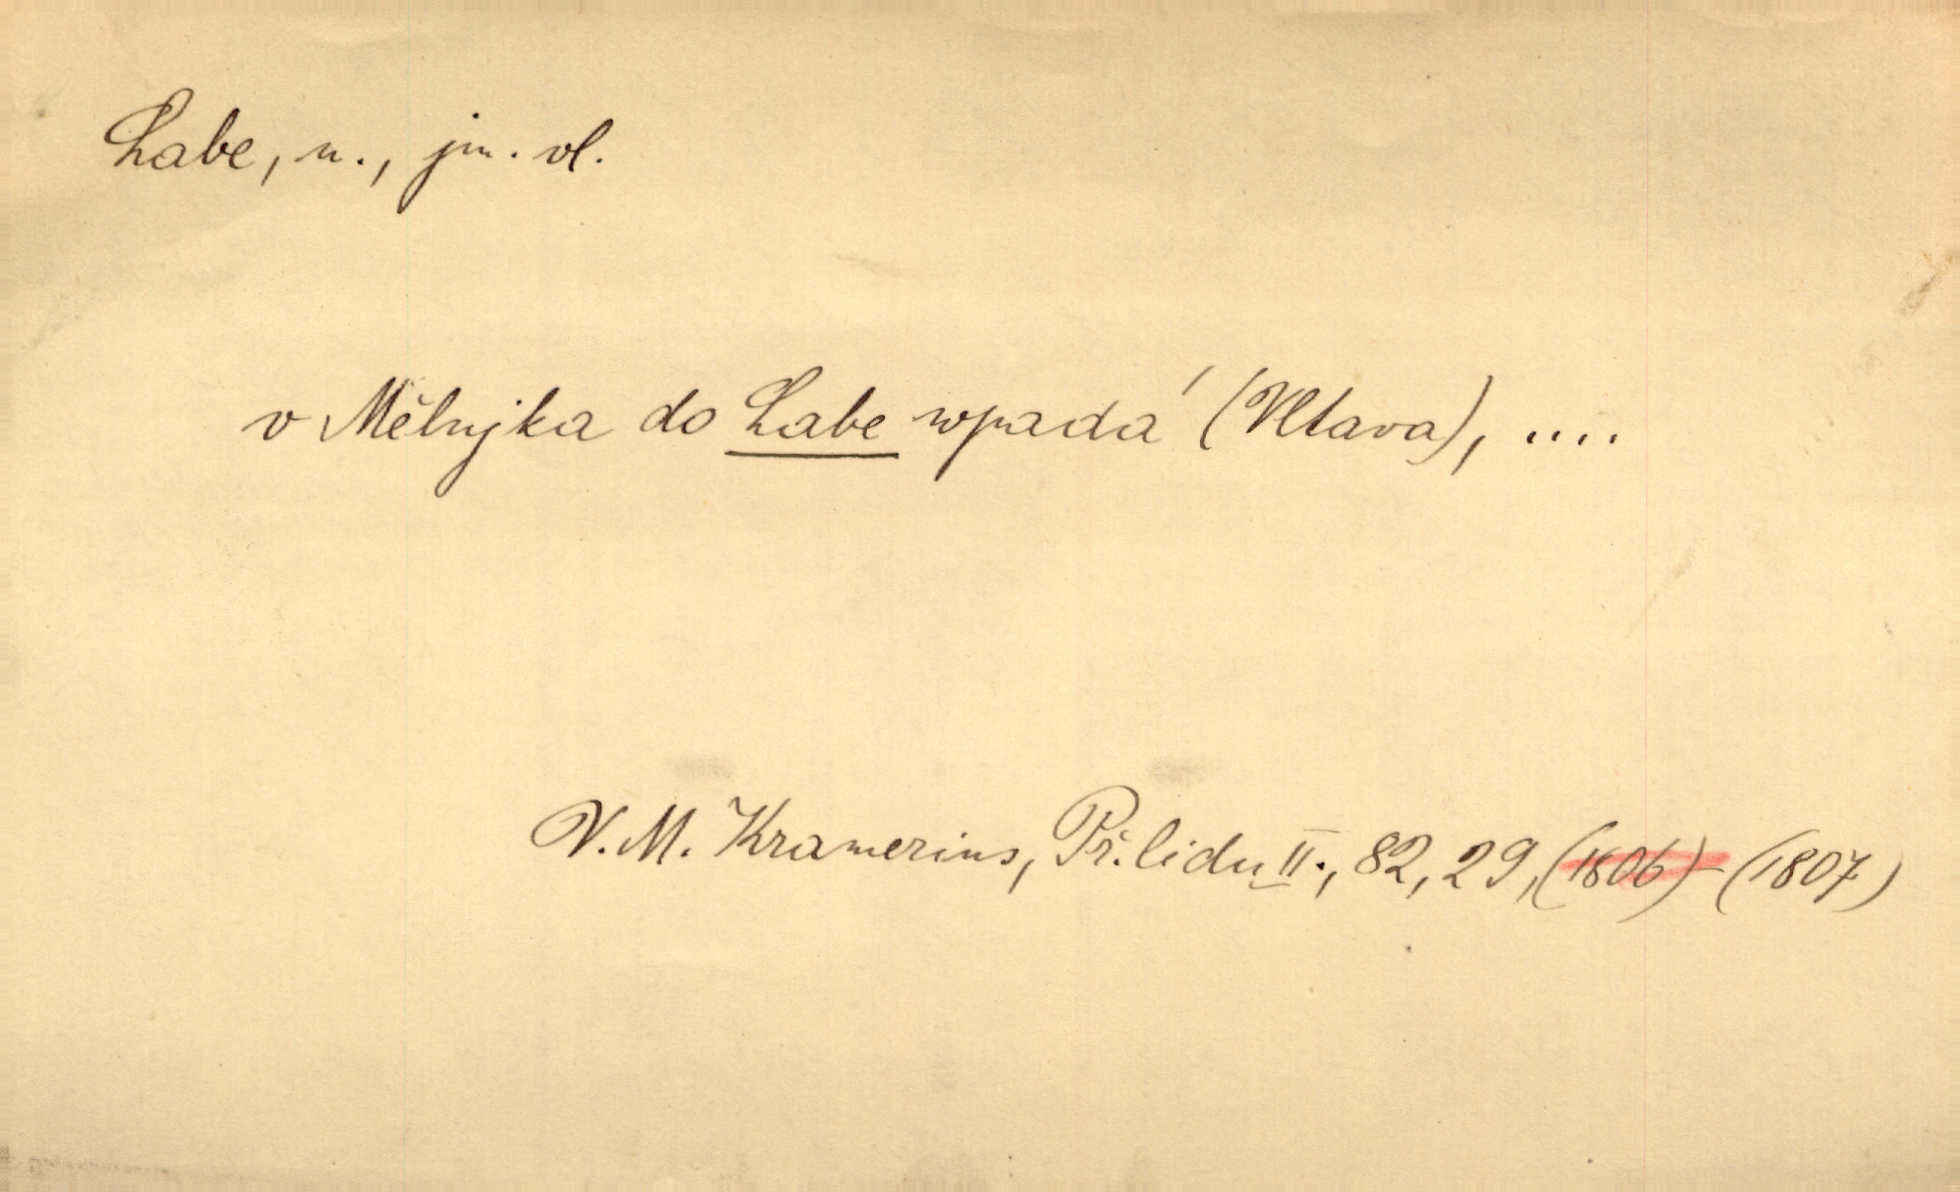 Labe, n., jm. vl.
v Mělnjka do Labe wpadá (Vltava), ....
V. M. Kramerius, Př. lidu II., 82, 29, (1806) - (1807)